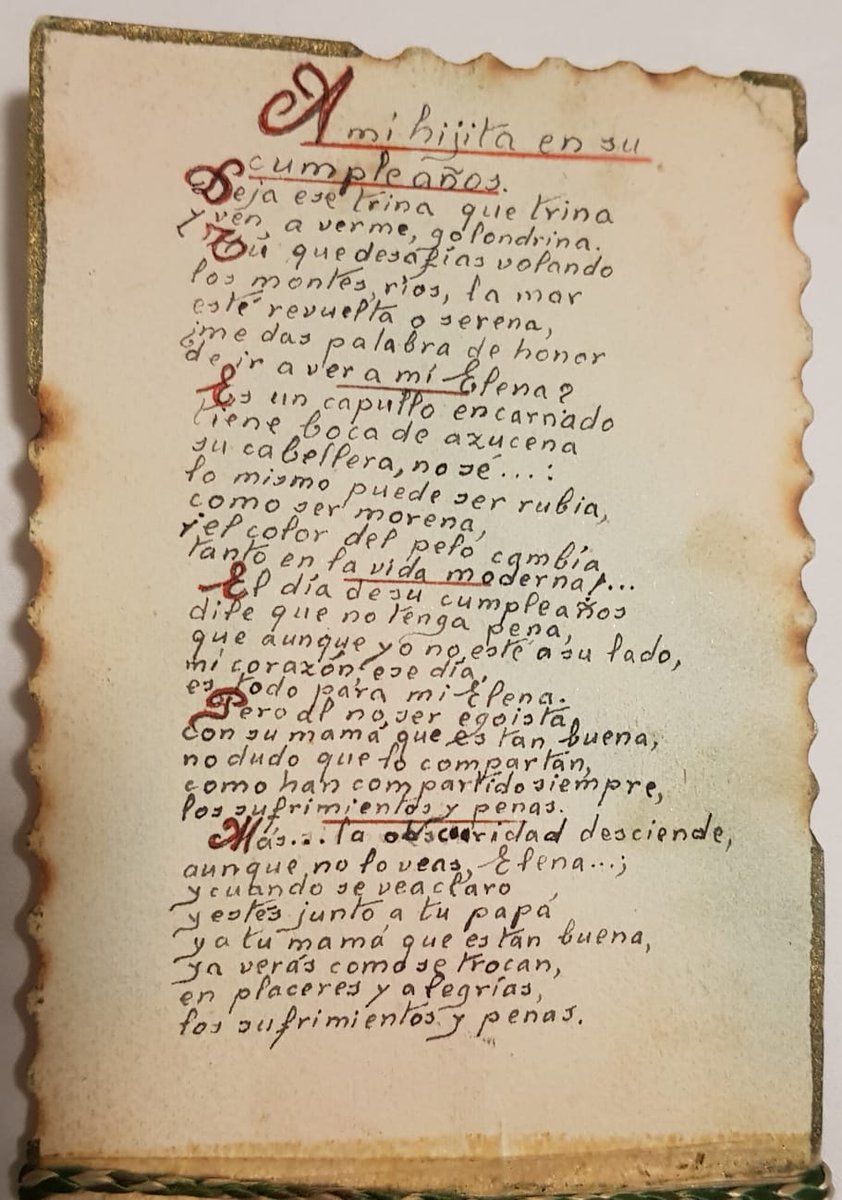 A mi hijita en su
cumpleaños.
Deja ese trina que trina
y ven, a verme, golondrina.
Tú que desafías volando
los montes, ríos, la mar
esté revuelta o serena,
¿me das palabra de honor
de ir a ver a mi Elena?
Es un capullo encarnado
tiene boca de azucena
su cabellera, no sé...:
lo mismo puede ser rubia,
como ser morena,
¡el color del pelo cambia
tanto en la vida moderna!...
El día de su cumpleaños
dile que no tenga pena,
que aunque yo no esté a su lado,
mi corazón, ese día,
es todo para mi Elena.
Pero al no ser egoista,
con su mamá que es tan buena,
no dudo que lo compartan,
como han compartido siempre,
los sufrimientos y penas.
Más... la obscuridad desciende,
aunque no lo veas, Elena...;
y cuando se vea claro
y estés junto a tu papá
y a tu mamá que es tan buena,
ya verás como se trocan,
en placeres y alegrías,
los sufrimientos y penas.